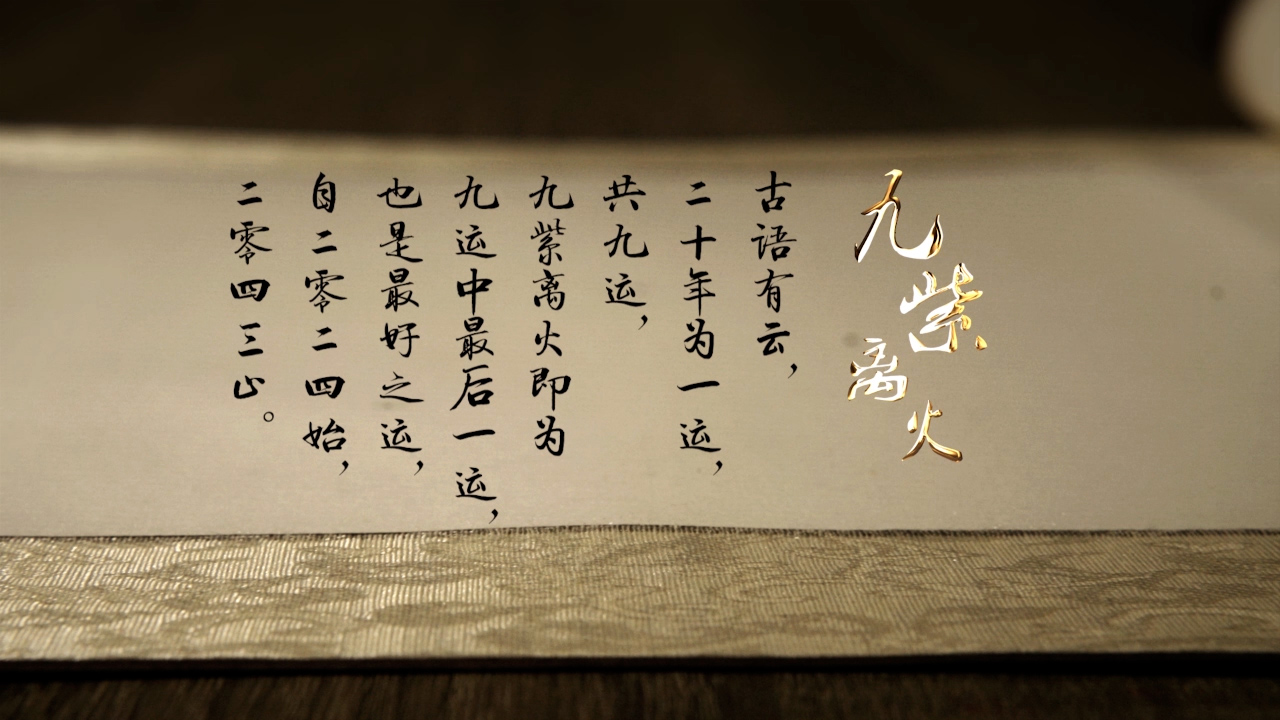 九紫离火
古语有云，
二十年为一运，
共九运，
九紫离火即为
九运中最后一运，
也是最好之运，
自二零二四始，
二零四三止。